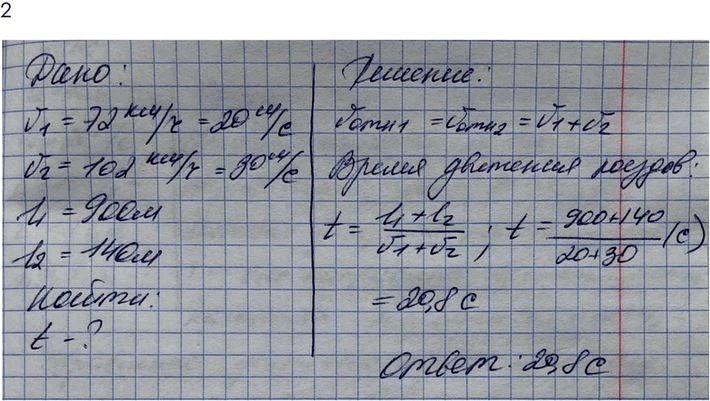 2
Дано:
v1 = 72 км/ч = 20 м/с
v2 = 102 км/ч = 30 м/с
l1 = 900м
l2 = 140м
Найти:
t - ?
Решение:
vотн1 = vотн2 = v1 + v2
Время движения поездов:
t = (l1 + l2)/(v1 + v2); t = (900+140)/(20+30) (с)
= 20,8 с
Ответ: 20,8 с